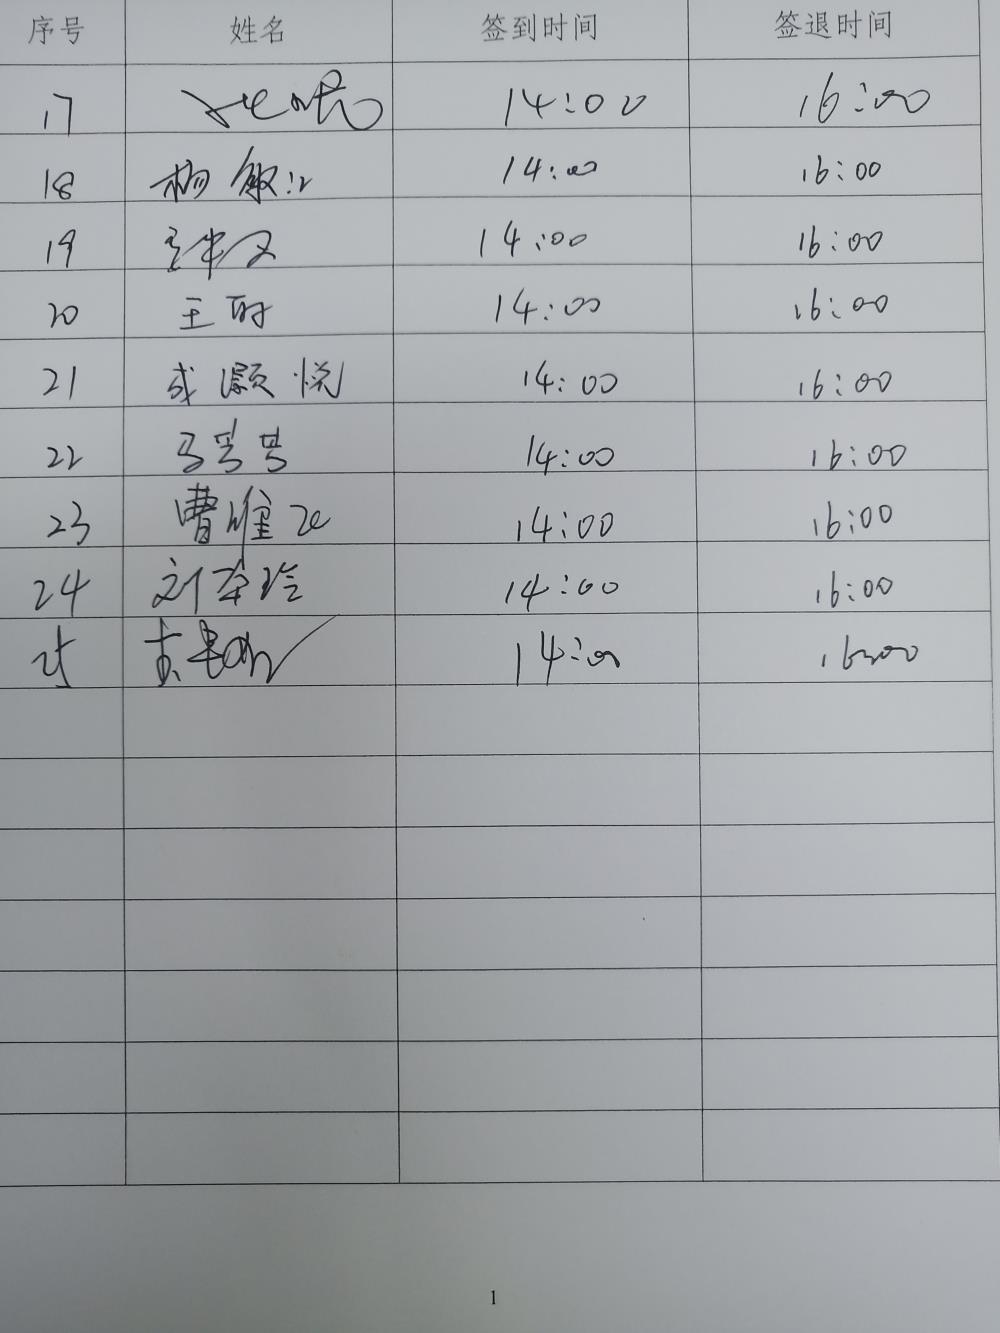 序号 姓名 签到时间 签退时间
17 14:00 16:00
18 杨敏 14:00 16:00
19 14:00 16:00
20 王 14:00 16:00
21 成灏悦 14:00 16:00
22 马 14:00 16:00
23 曹维 14:00 16:00
24 刘 玲 14:00 16:00
25 14:00 16:00
1